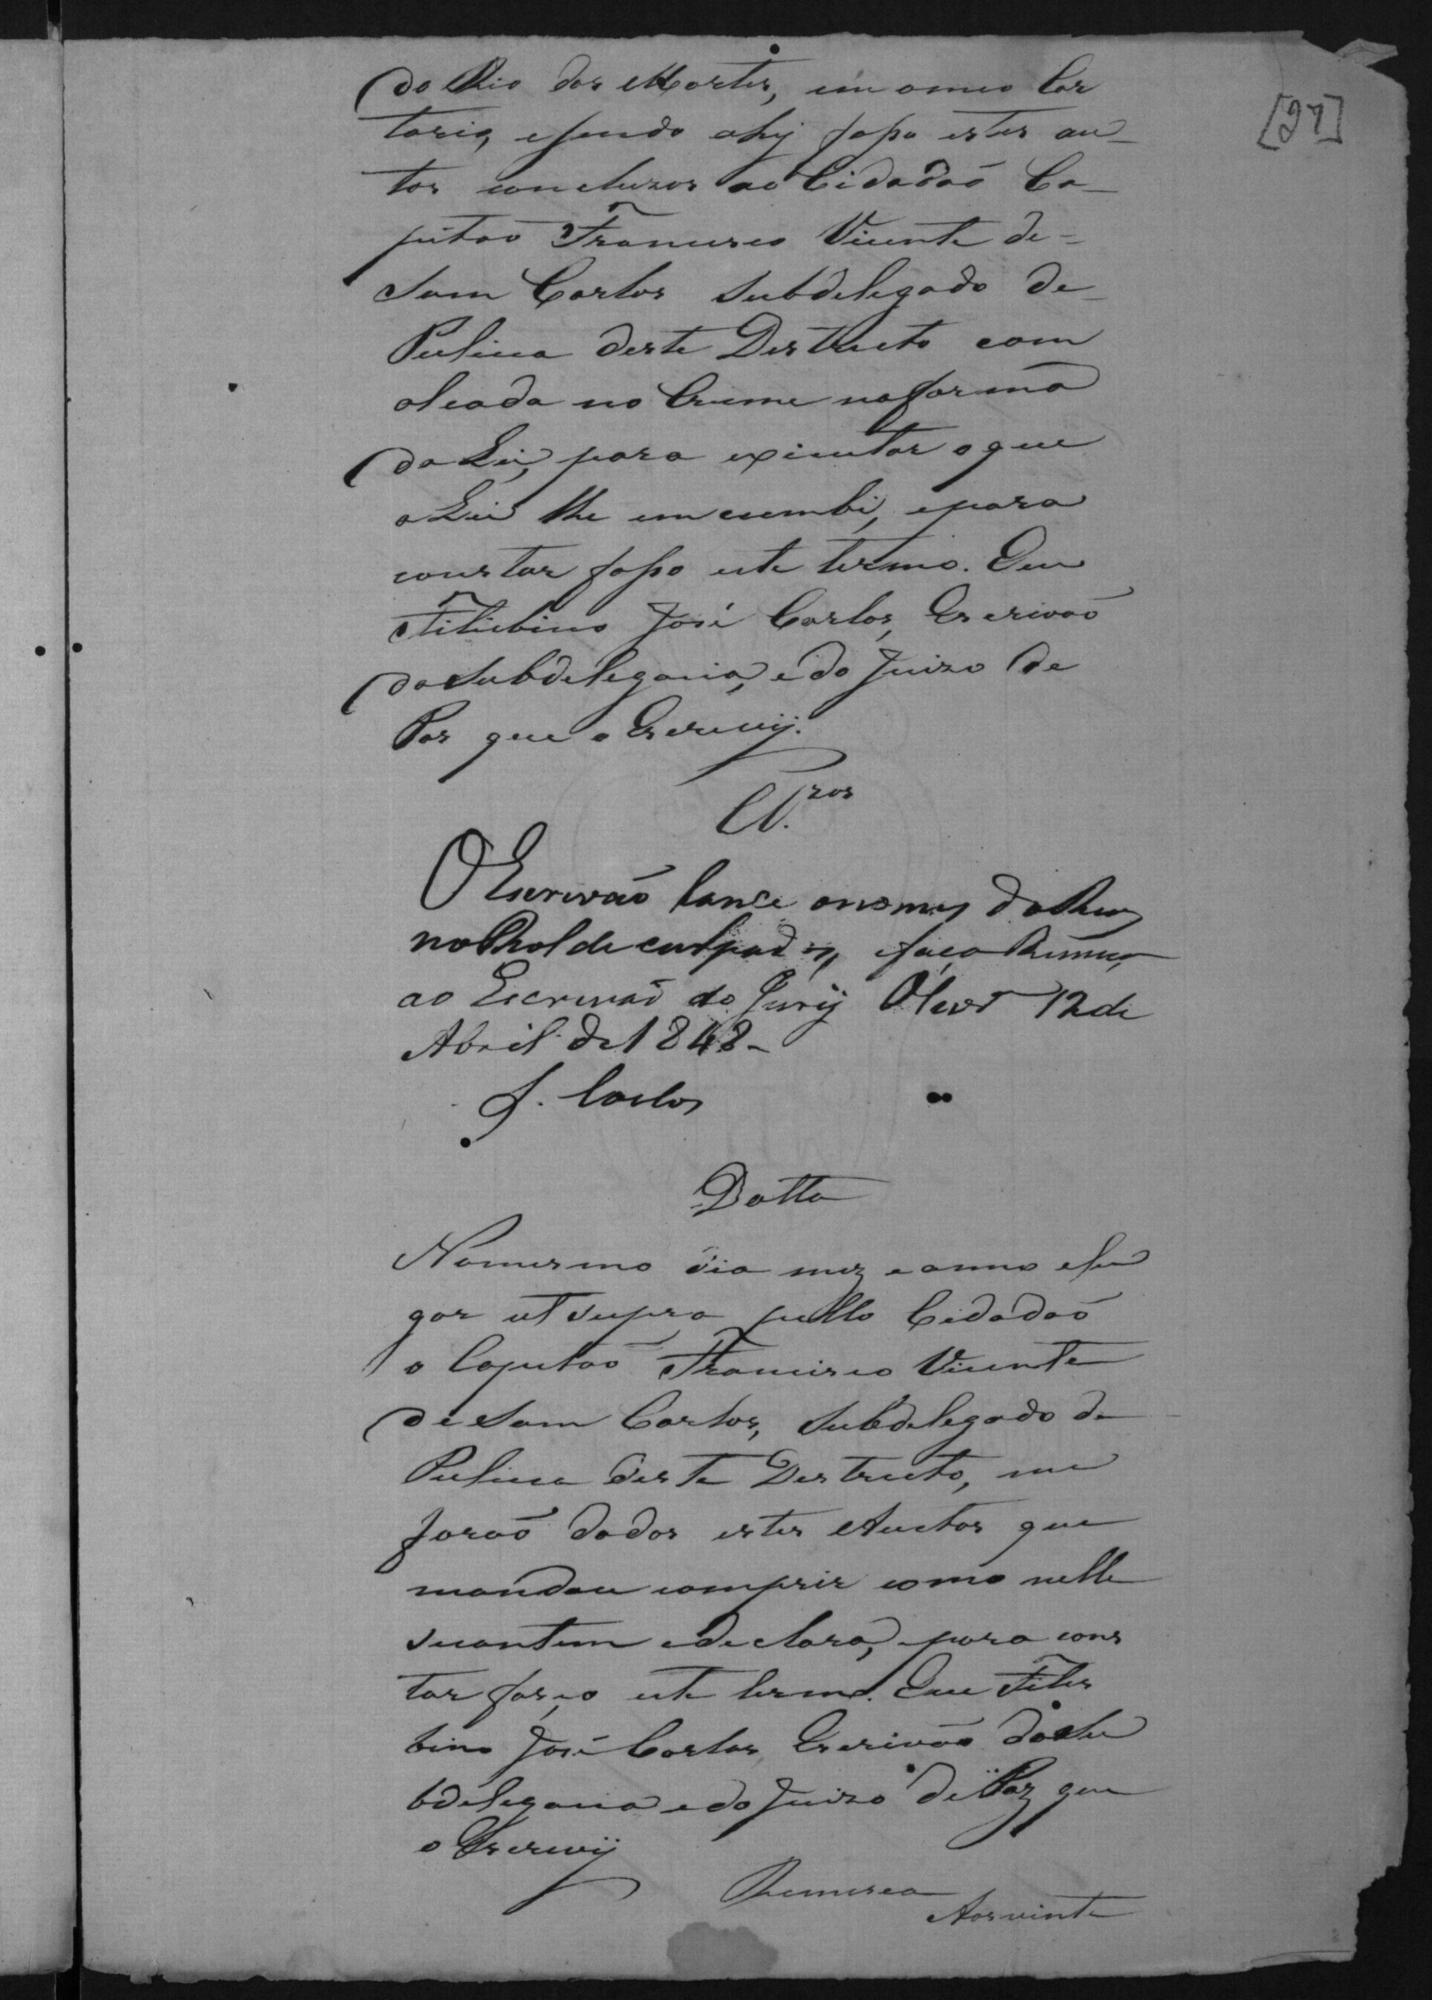 [27]
do Rio das Mortes, em o meo Car
torio, e sendo ahy fasso estes au_
tos concluzos ao Cidadaõ Ca_
pitaõ Francisco Vicente de=
Sam Carlos Subdelegado de_
Pulicia deste Destructo com
alcada no Crime na forma
da Lei, para exicutar o que
a Lei lhe emcumbi, e para
constar fasso este termo. Eeu
José Carlos, Escrivaõ
da Subdelegacia, e do Juizo de
Pas que o Escrevÿ.
Cl.zos
O Escrivaõ lance o nomes do Reos
no Rol de culpados, e faça Remeça
ao Escrivaõ do Jurÿ 12 de
Abril de 1848_
S. Carlos
Datta
No mesmo dia mez e anno e lu
gar ut supra pello Cidadaõ
o Capitaõ Francisco Vicente
de Sam Carlos, Subdelegado de
Pulicia deste Destructo, me
foraõ dados estes Auctos que
mandou comprir como nelle
se contem e declara, e para cons
tar fasço este termo. Eeu
bino José Carlos Escrivaõ da Su
bdelegacia e do Juizo de Paz que
o Escrevÿ
Remessa
Aos vinte